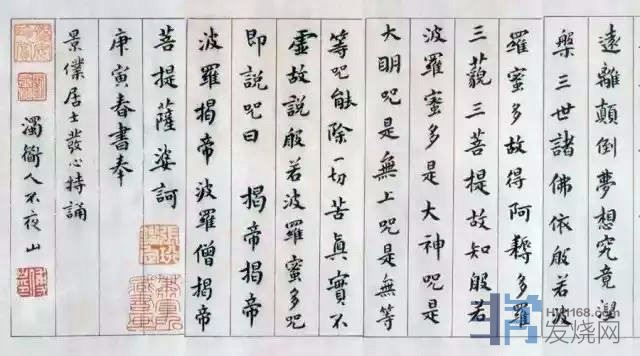 遠離顛倒夢想究竟涅
槃三世諸佛依般若波
羅蜜多故得阿耨多羅
三藐三菩提故知般若
波羅蜜多是大神呪是
大明呪是無上呪是無等
等呪能除一切苦真實不
虛故說般若波羅蜜多呪
即說呪曰 揭帝揭帝
波羅揭帝 波羅僧揭帝
菩提薩婆訶
庚寅春書奉
景僕居士發心持誦
濁衜人不夜山
发烧网